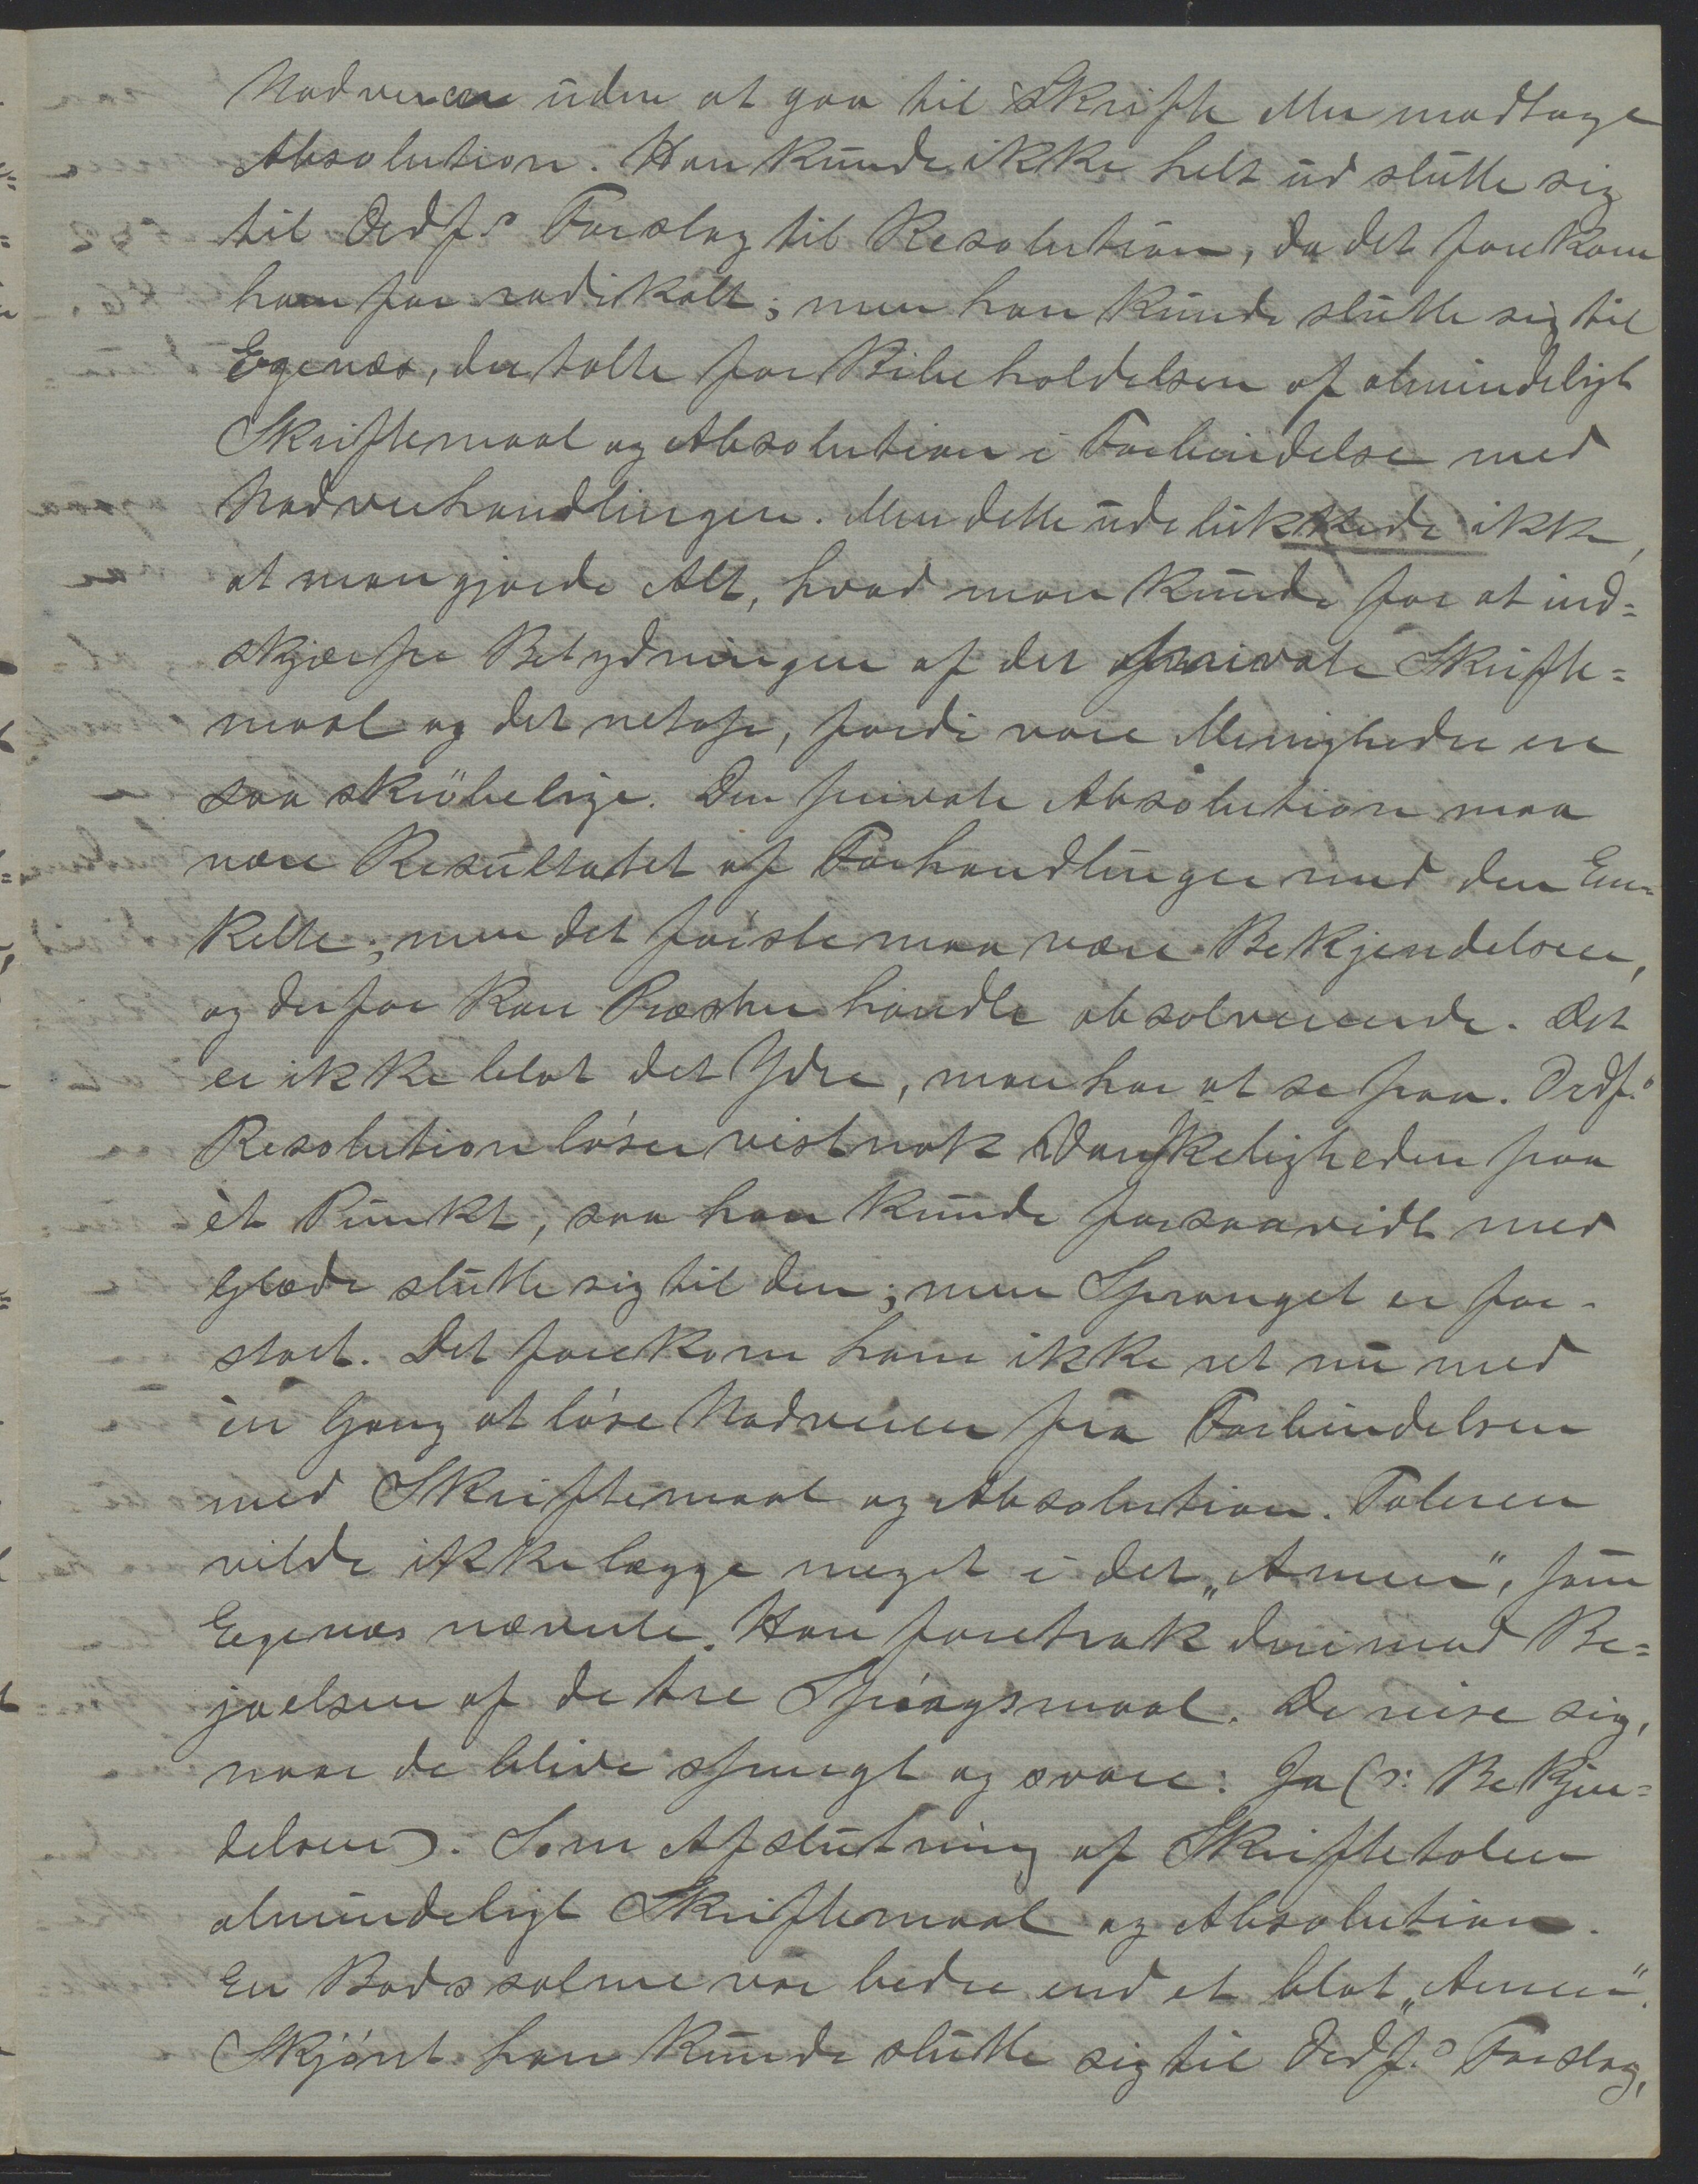 Nadveren uden at gaa til Skrifte eller modtage
Absolution. Han kunde ikke helt ud slutte sig
til Ordf.s Forslag til Resolution, da det forekom
ham for radikalt; men han kunde slutte sig til
Egenæs, der talte for Bibeholdelsen af almindeligt
Skriftemaal og Absolution i Forbindelse med
Nadverhandlingen. Men dette udelukkede ikke,
at man gjorde Alt, hvad man kunde for at ind=
skjærpe Betydningen af det private Skrifte=
maal og det netop, fordi vore Menigheder ere
saa skröbelige. Den private Absolution maa
være Resultatet af Forhandlinger med den En=
kelte; men det förste maa være Bekjendelsen,
og derfor kan Præsten handle absolverende. Det
er ikke blot det Ydre, man har at se paa. Ordf.s
Resolution löser vistnok Vanskeligheden paa
èt Punkt, saa han kunde forsaavidt med
Glæde slutte sig til den; men Spranget er for
stort. Det forekom ham ikke ret nu med
èn Gang at löse Nadveren fra Forbindelsen
med Skriftemaal og Absolution. Taleren
vilde ikke lægge meget i det „Amen", som
Egenæs nævnte. Han foretrak derimod Be=
jaelsen af de tre Spörgsmaal. De reise sig,
naar de blive spurgt og svare: Ja (ɔ: Bekjen=
delsen). Som Afslutning af Skrifletalen
almindeligt Skriftemaal og Absolution.
En Bodssalme var bedre end et blot „Amen".
Skjönt han kunde slutte sig til Ordf.s Forslag,